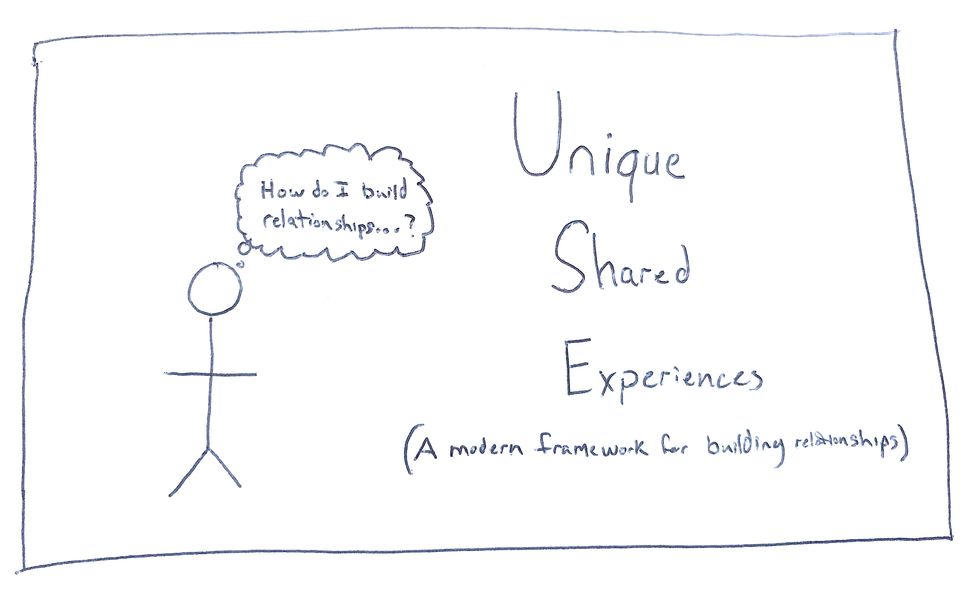 How do I build
relationships...?
Unique
Shared
Experiences
(A modern framework for building relationships)